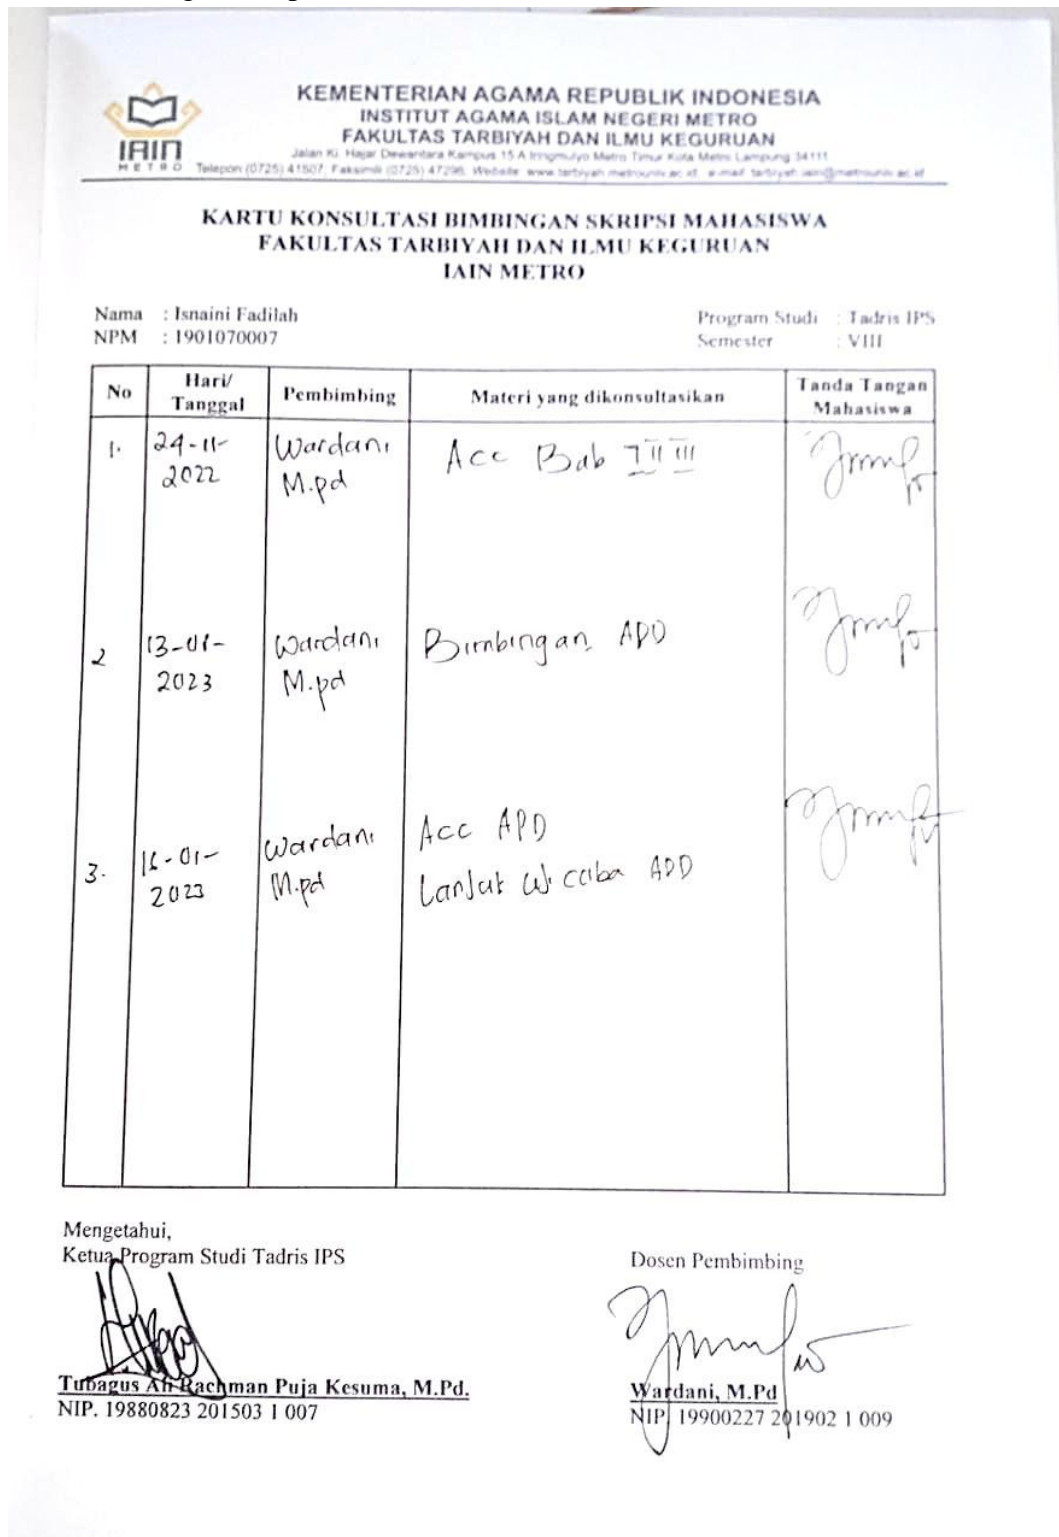 KEMENTERIAN AGAMA REPUBLIK INDONESIA
INSTITUT AGAMA ISLAM NEGERI METRO
FAKULTAS TARBIYAH DAN ILMU KEGURUAN
Jalan Ki. Hajar Dewantara Kampus 15 A Iringmulyo Metro Timur Kota Metro Lampung 34111
Telepon (0725) 41507; Faksimili (0725) 47296; Website: www.tarbiyah.metrouniv.ac.id; e-mail: tarbiyah.iain@metrouniv.ac.id
IAIN
METRO
KARTU KONSULTASI BIMBINGAN SKRIPSI MAHASISWA
FAKULTAS TARBIYAH DAN ILMU KEGURUAN
IAIN METRO
Nama : Isnaini Fadilah
NPM : 1901070007
Program Studi : Tadris IPS
Semester : VIII
No Hari/ Tanggal Pembimbing Materi yang dikonsultasikan Tanda Tangan Mahasiswa
1. 24-11-2022 Wardani M.pd Acc Bab I II III
2 13-01-2023 Wardani M.pd Bimbingan APD
3. 16-01-2023 Wardani M.pd Acc APD
Lanjut coba APD
Mengetahui,
Ketua Program Studi Tadris IPS
Tubagus Ali Rachman Puja Kesuma, M.Pd.
NIP. 19880823 201503 1 007
Dosen Pembimbing
Wardani, M.Pd
NIP. 19900227 201902 1 009